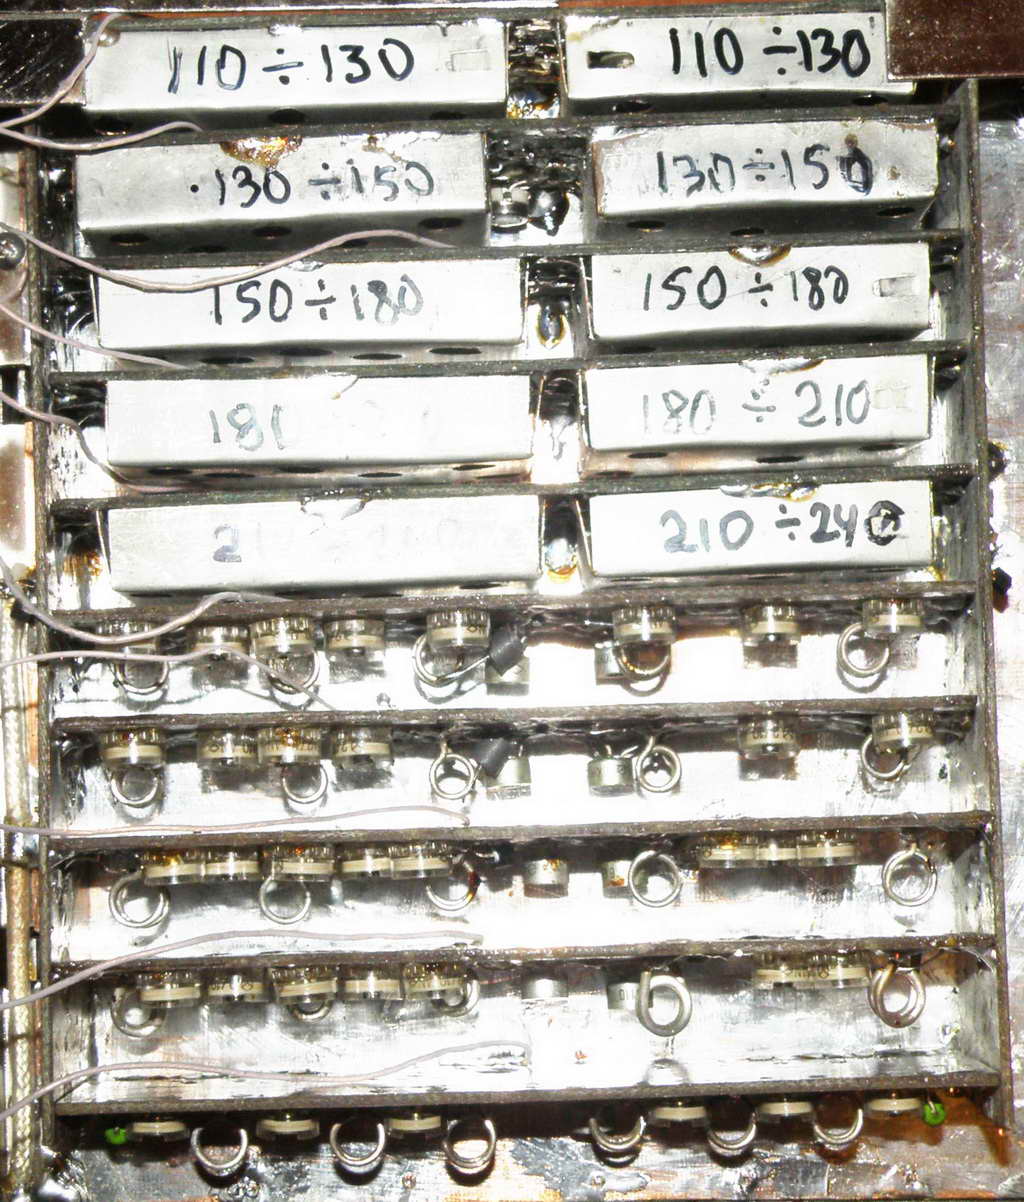 110 ÷ 130 110 ÷ 130
130 ÷ 150 130 ÷ 150
150 ÷ 180 150 ÷ 180
180 180 ÷ 210
210 ÷ 240